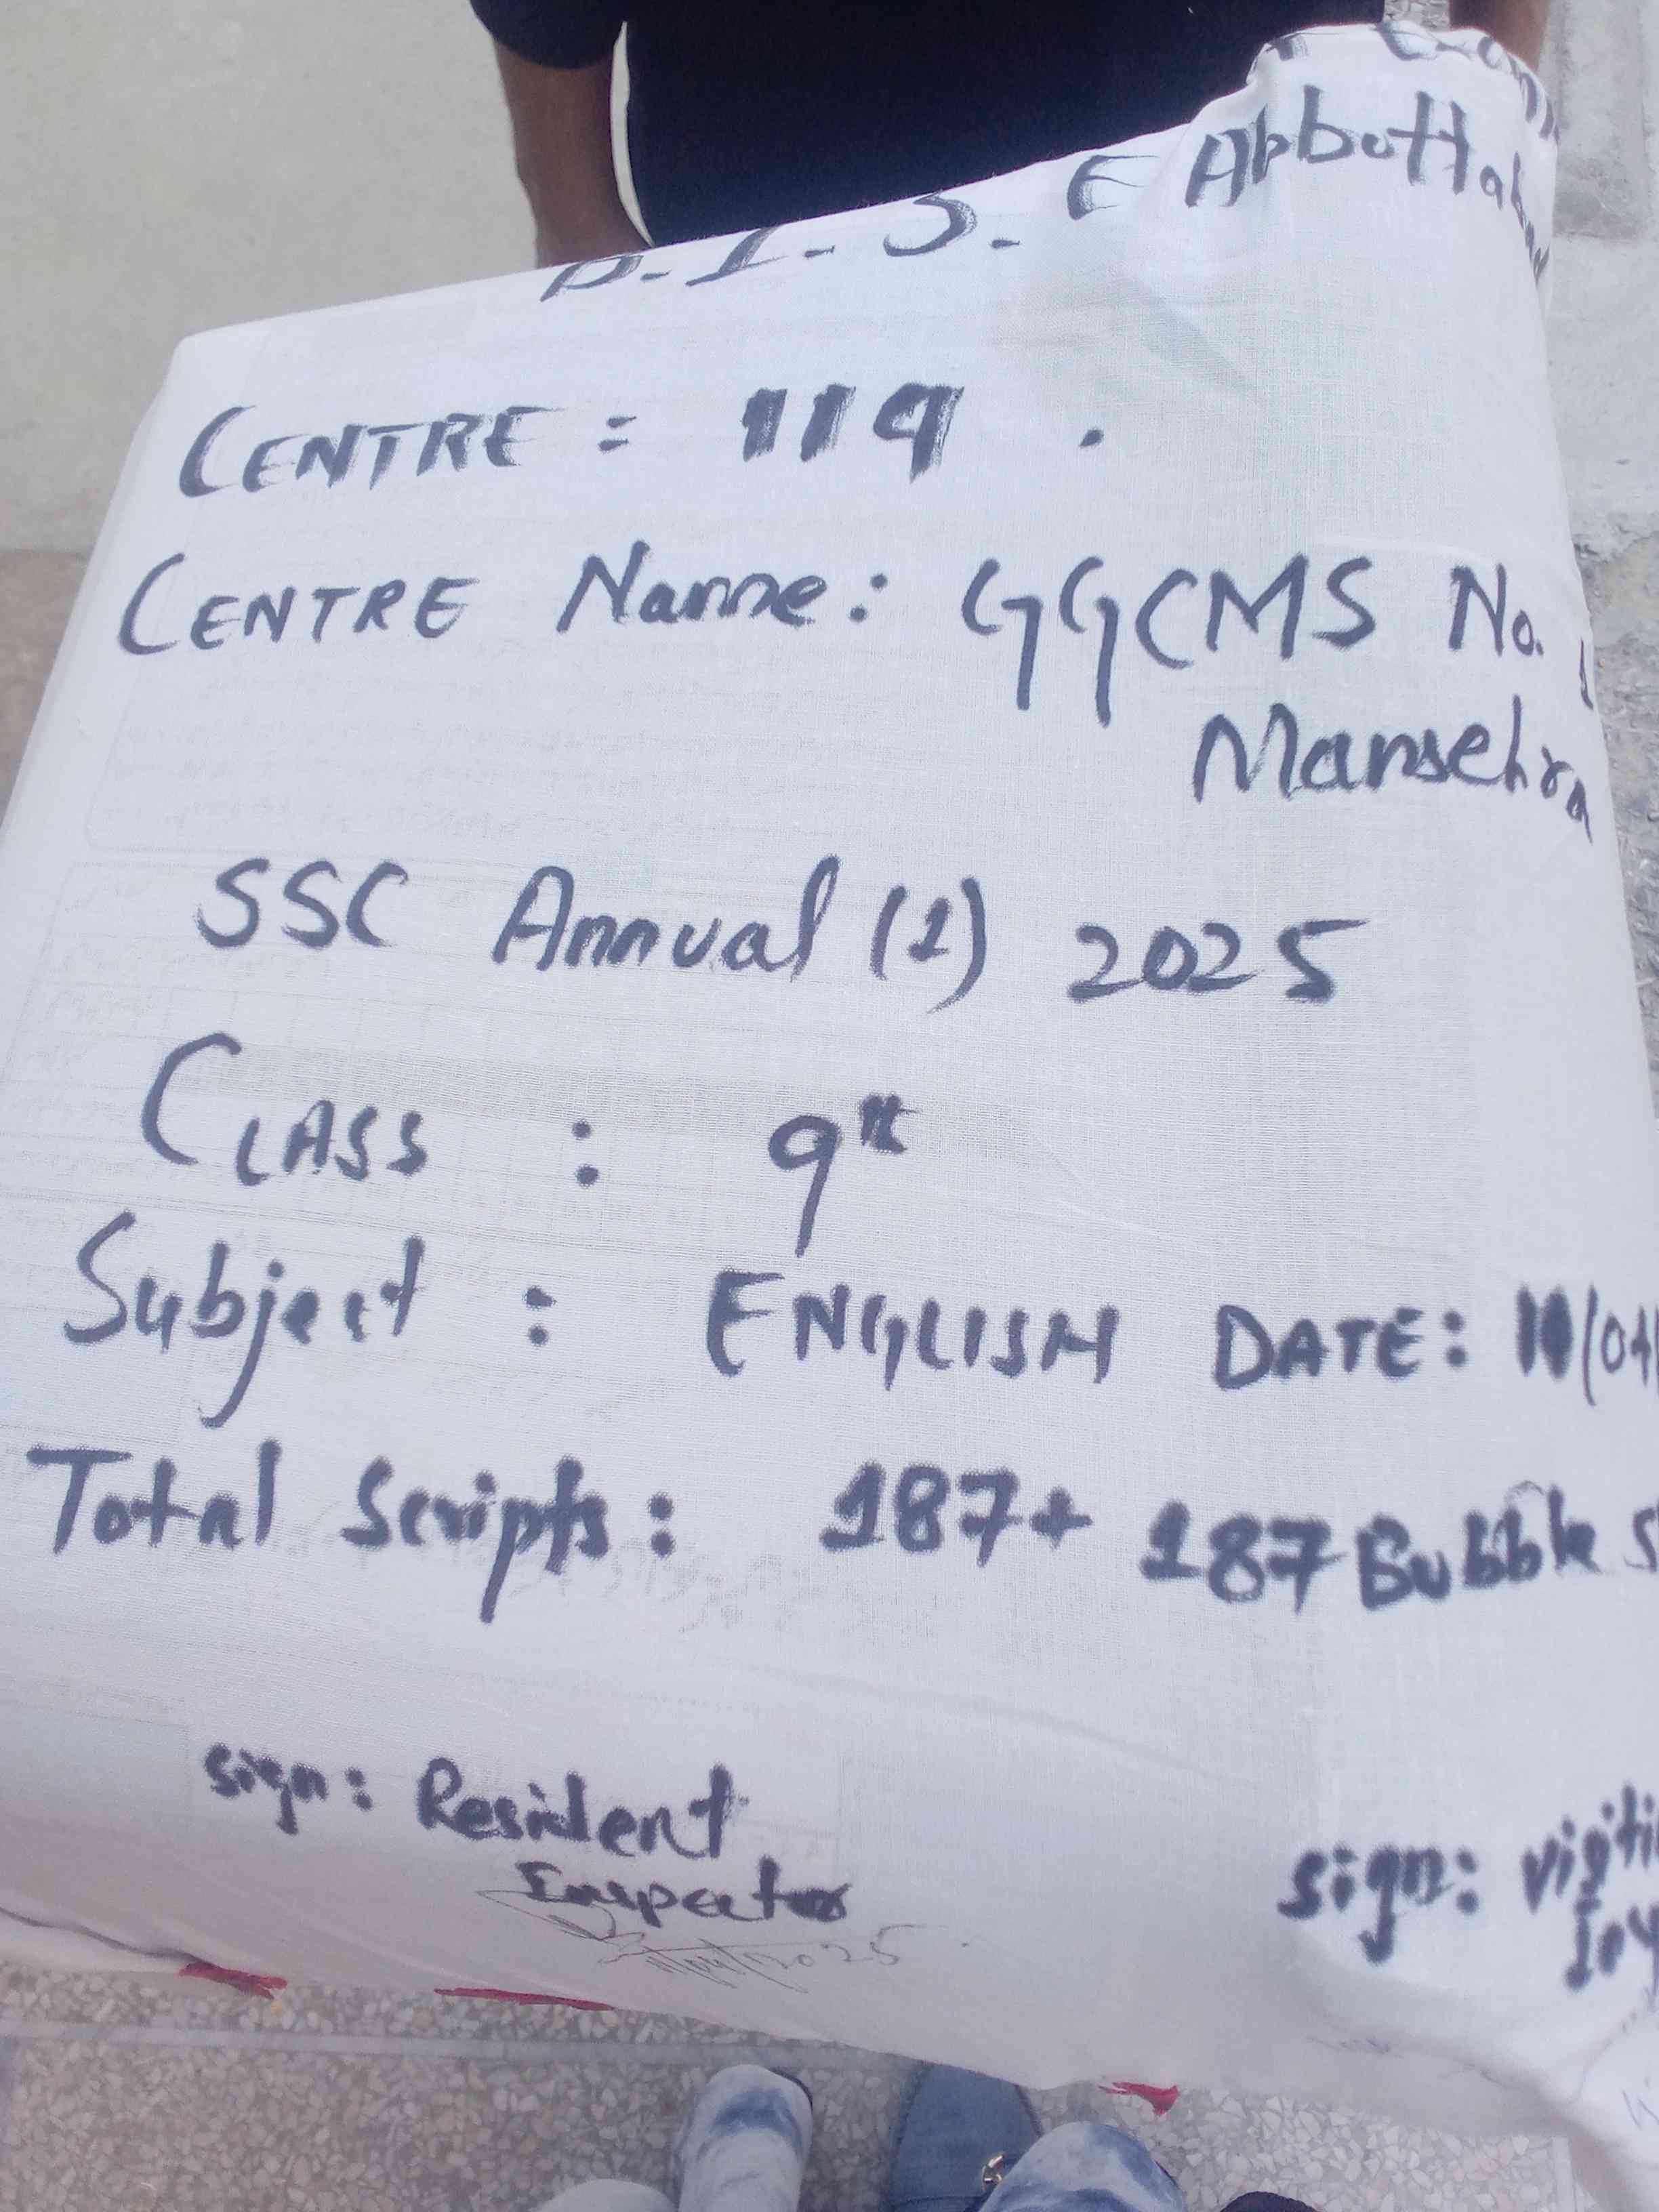 B.I.S.E Abbottabad
CENTRE = 119.
CENTRE Name: GGCMS No. 1
Mansehra
SSC Annual (1) 2025
CLASS : 9th
Subject : ENGLISH DATE: 10/04/
Total Scripts: 187+ 187 Bubble S
sign: Resident
Inspector
sign:
/2025